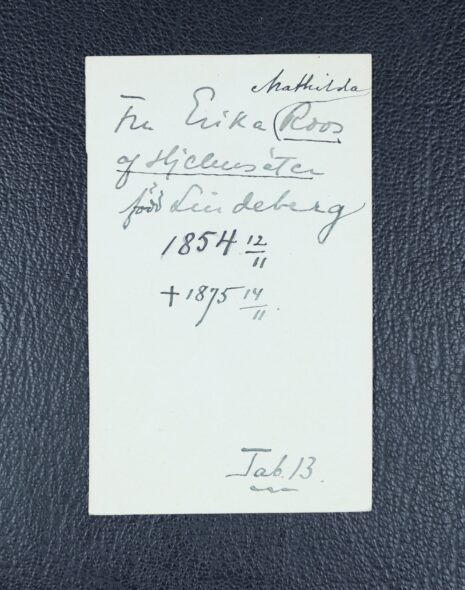 Mathilda
Fru Erika (Roos
af Hjelmsäter
född Lindeberg
1854 12/11
+ 1875 14/11.
Tab. 13.